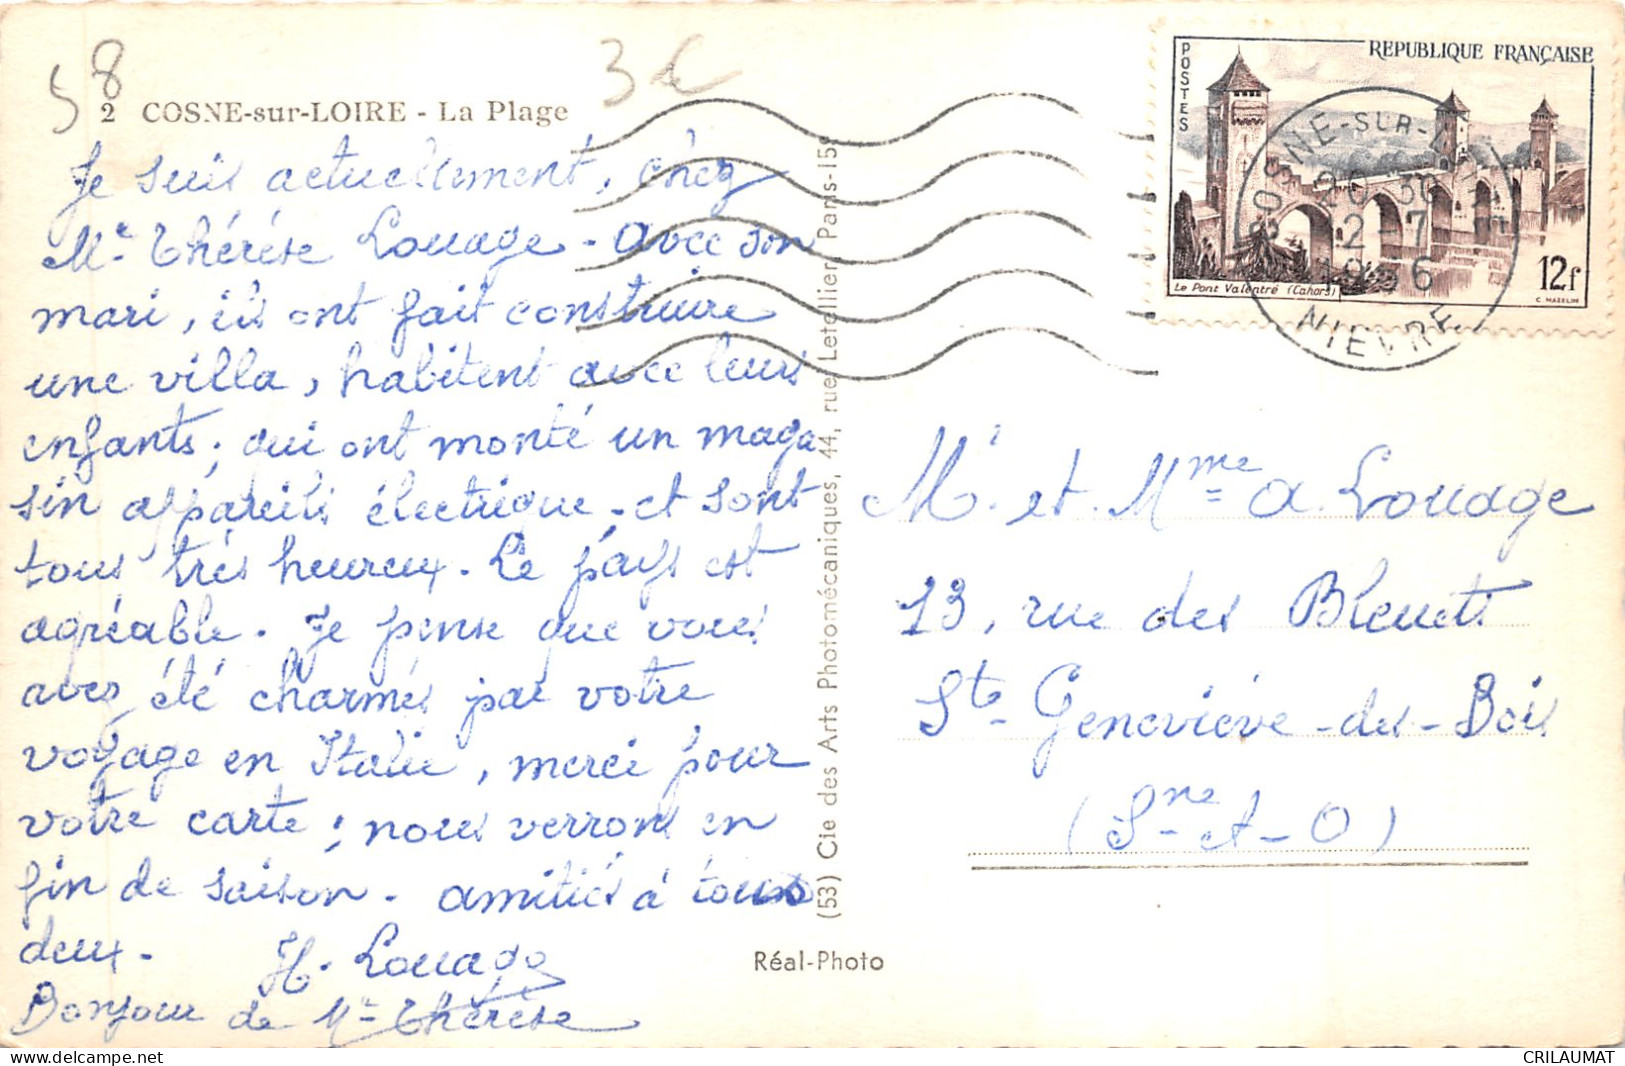 58
3€
2 COSNE-sur-LOIRE - La Plage
Je suis actuellement, chez
Me Thérèse Louage - avec son
mari, ils ont fait construire
une villa, habitent avec leurs
enfants; qui ont monté un maga
sin appareils électrique - et sont
tous très heureux. Le pays est
agréable. Je pense que vous
avez été charmés par votre
voyage en Italie, merci pour
votre carte; nous verrons en
fin de saison - amitiés à tous
deux. H. Louage
Bonjour de Me Thérèse
(53) Cie des Arts Photomécaniques, 44, rue Letellier, Paris-15e
Réal-Photo
POSTES
REPUBLIQUE FRANÇAISE
Le Pont Valentré (Cahors)
12f
C. MAZELIN
COSNE-SUR-LOIRE
20 30
2-7
1956
NIEVRE
Mr. et Mme a. Louage
13, rue des Bleuets
Ste-Geneviève-des-Bois
(Sne-et-O)
CRILAUMAT
www.delcampe.net